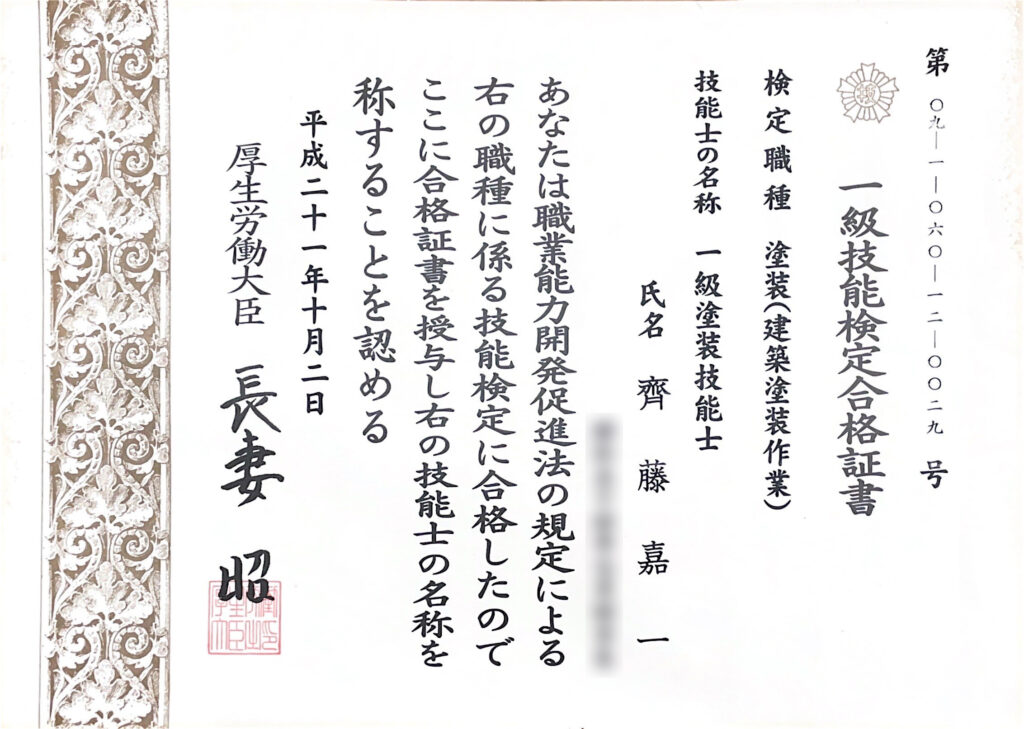 第〇九―一―〇六〇―一二―〇〇二九号
一級技能検定合格証書
検定職種 塗装(建築塗装作業)
技能士の名称 一級塗装技能士
氏名 齊藤嘉一
あなたは職業能力開発促進法の規定による
右の職種に係る技能検定に合格したので
ここに合格証書を授与し右の技能士の名称を
称することを認める
平成二十一年十月二日
厚生労働大臣 長妻昭